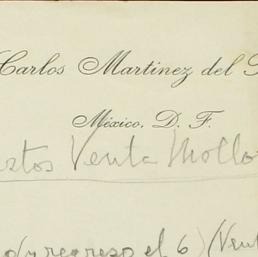 Carlos Martinez del
México, D. F.
Venta
regreso el 6) (Vent